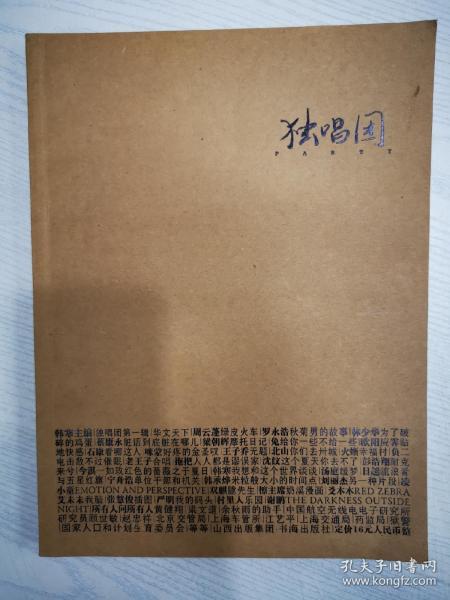 独唱团
PARTY
韩寒主编|独唱团第一辑|华文天下|周云蓬绿皮火车|罗永浩秋菊男的故事|韩少华为了破
碎的鸡蛋|蔡康永脏话到底脏在哪儿|梁朝辉摩托日记|兔给你一些不给一些|欧阳应霁贴
地快感|石康看哪这人|咪蒙好疼的金圣叹|王子乔无题|北山你们去卅城|火烛幸福村|负二
电击敌不过催眠|老王子合唱|拖把人人都是误误家|沈纹这个夏天你去不了|彭浩翔阳克
来兮|今淇一如玫红色的蔷薇之于夏日|韩寒我想和这个世界谈谈|汤妮缅罗|日迟
与五星红旗|宁舟浩单位干部和机关|韩承烨米粒般大小的时间点|刘丽杰另一种片段|凌
小童EMOTION AND PERSPECTIVE|双麒赃先生|檀主席奶溪漫画|爱本本RED ZEBRA
艾未未我脑|张慧俊插图|严明我的码头|村里人乐园|谢鹏THE DARKNESS OUTSIDE
NIGHT|所有人问所有人|黄健翔|梁文道|余秋雨的助手|中国航空无线电电子研究所
研究员顾世敏|赵忠祥|北京交管局|上海车管所|江艺平|上海交通局|药监局|狱警
|国家人口和计划生育委员会|等等|山西出版集团|书海出版社|定价16元人民币
孔夫子旧书网